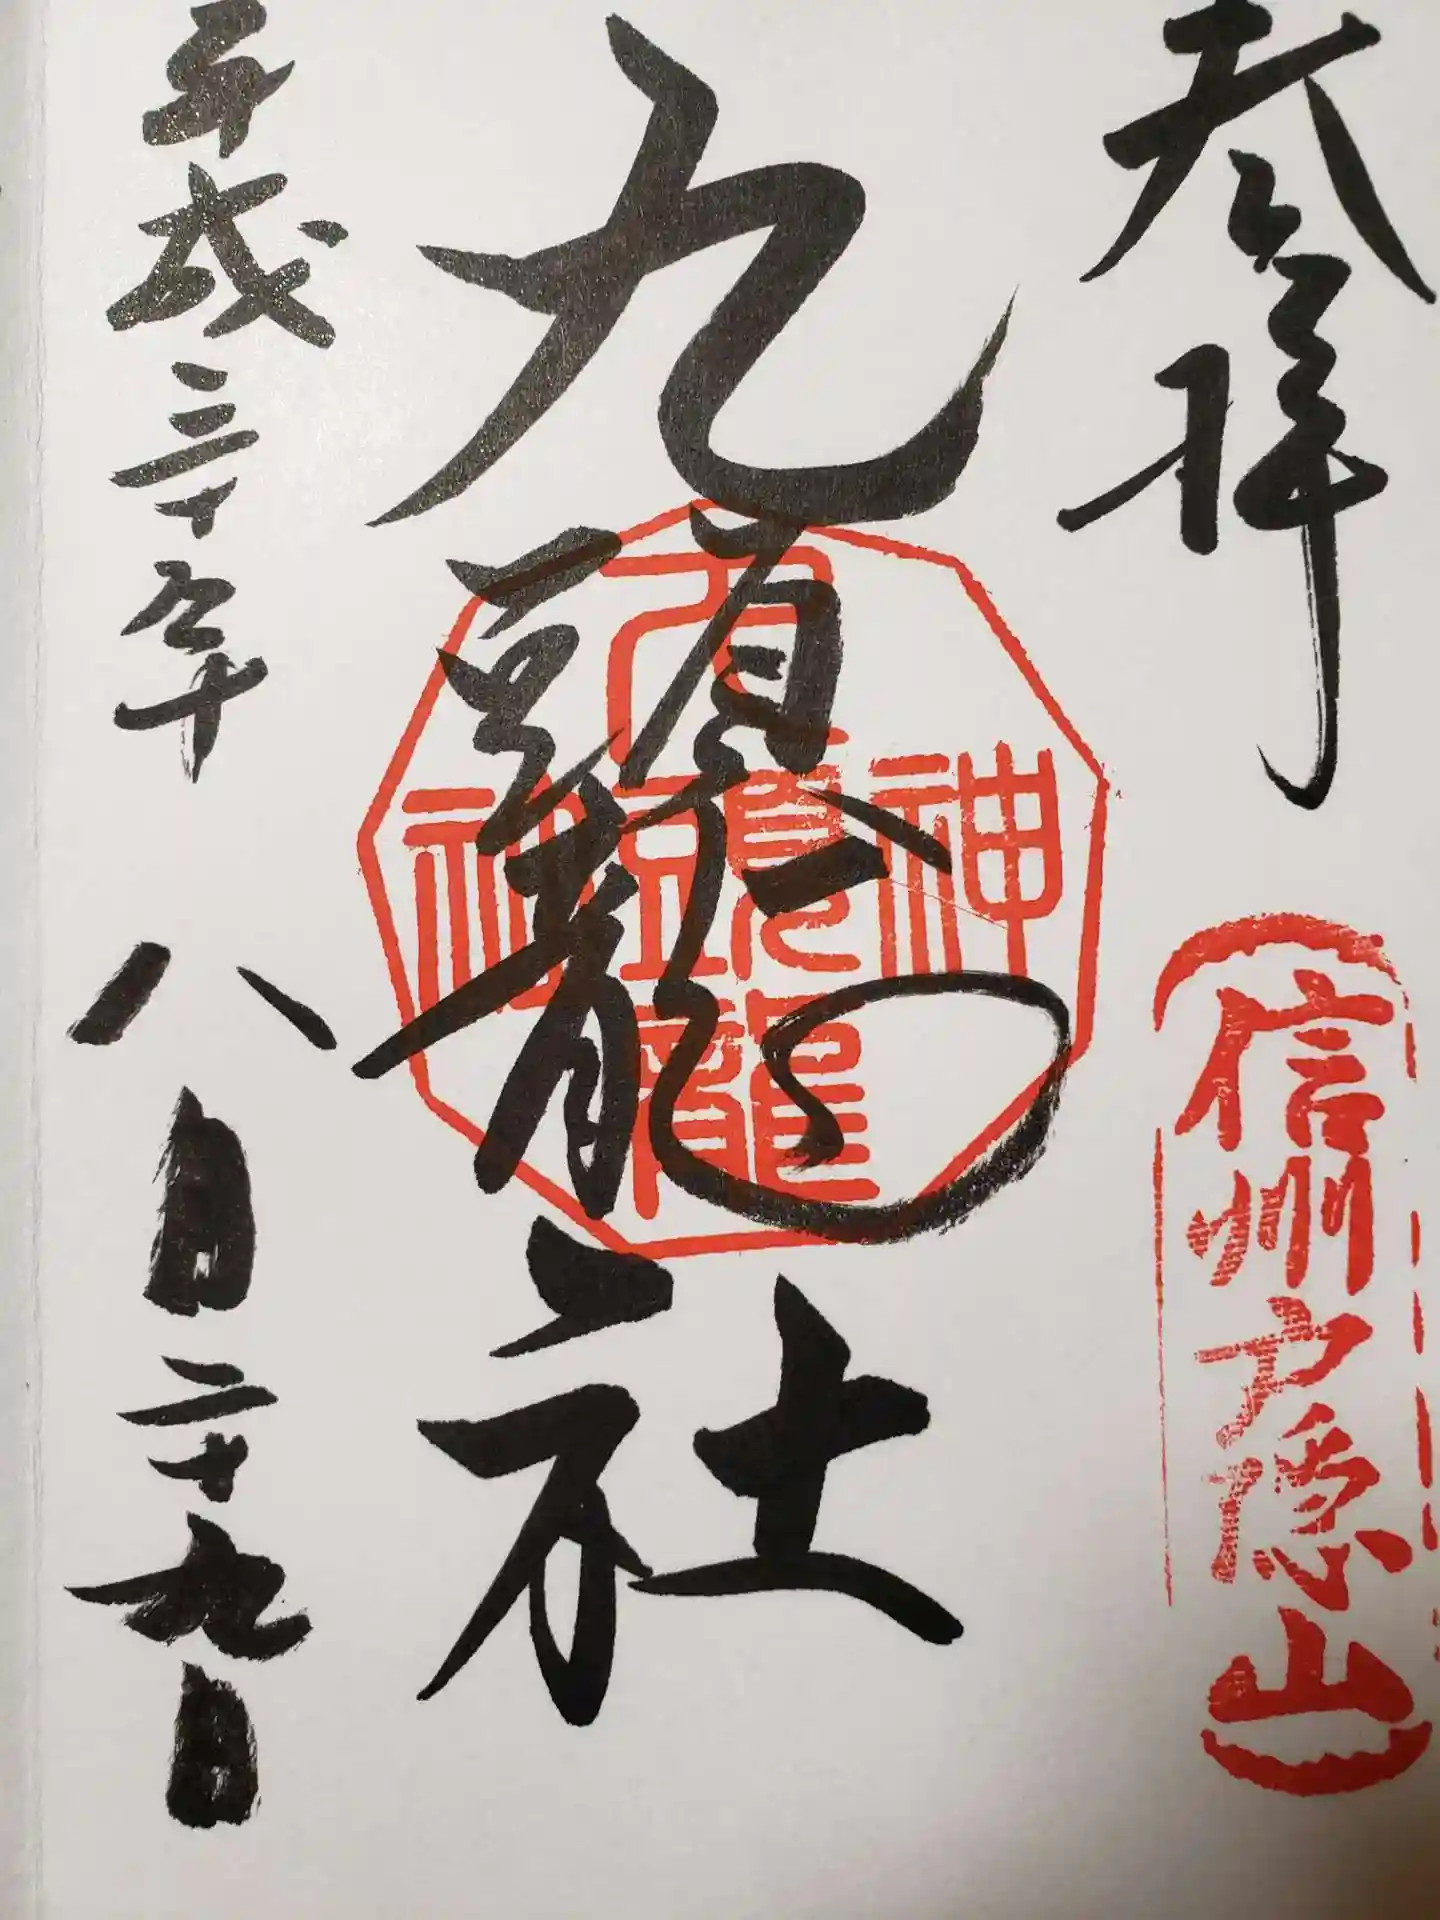 参拝
信州戸隠山
九頭龍社
九頭龍神社
平成三十年八月二十九日